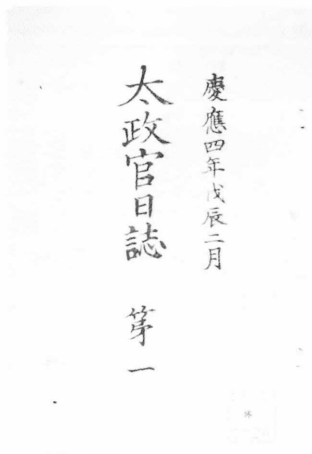 慶應四年戊辰二月
太政官日誌 第一